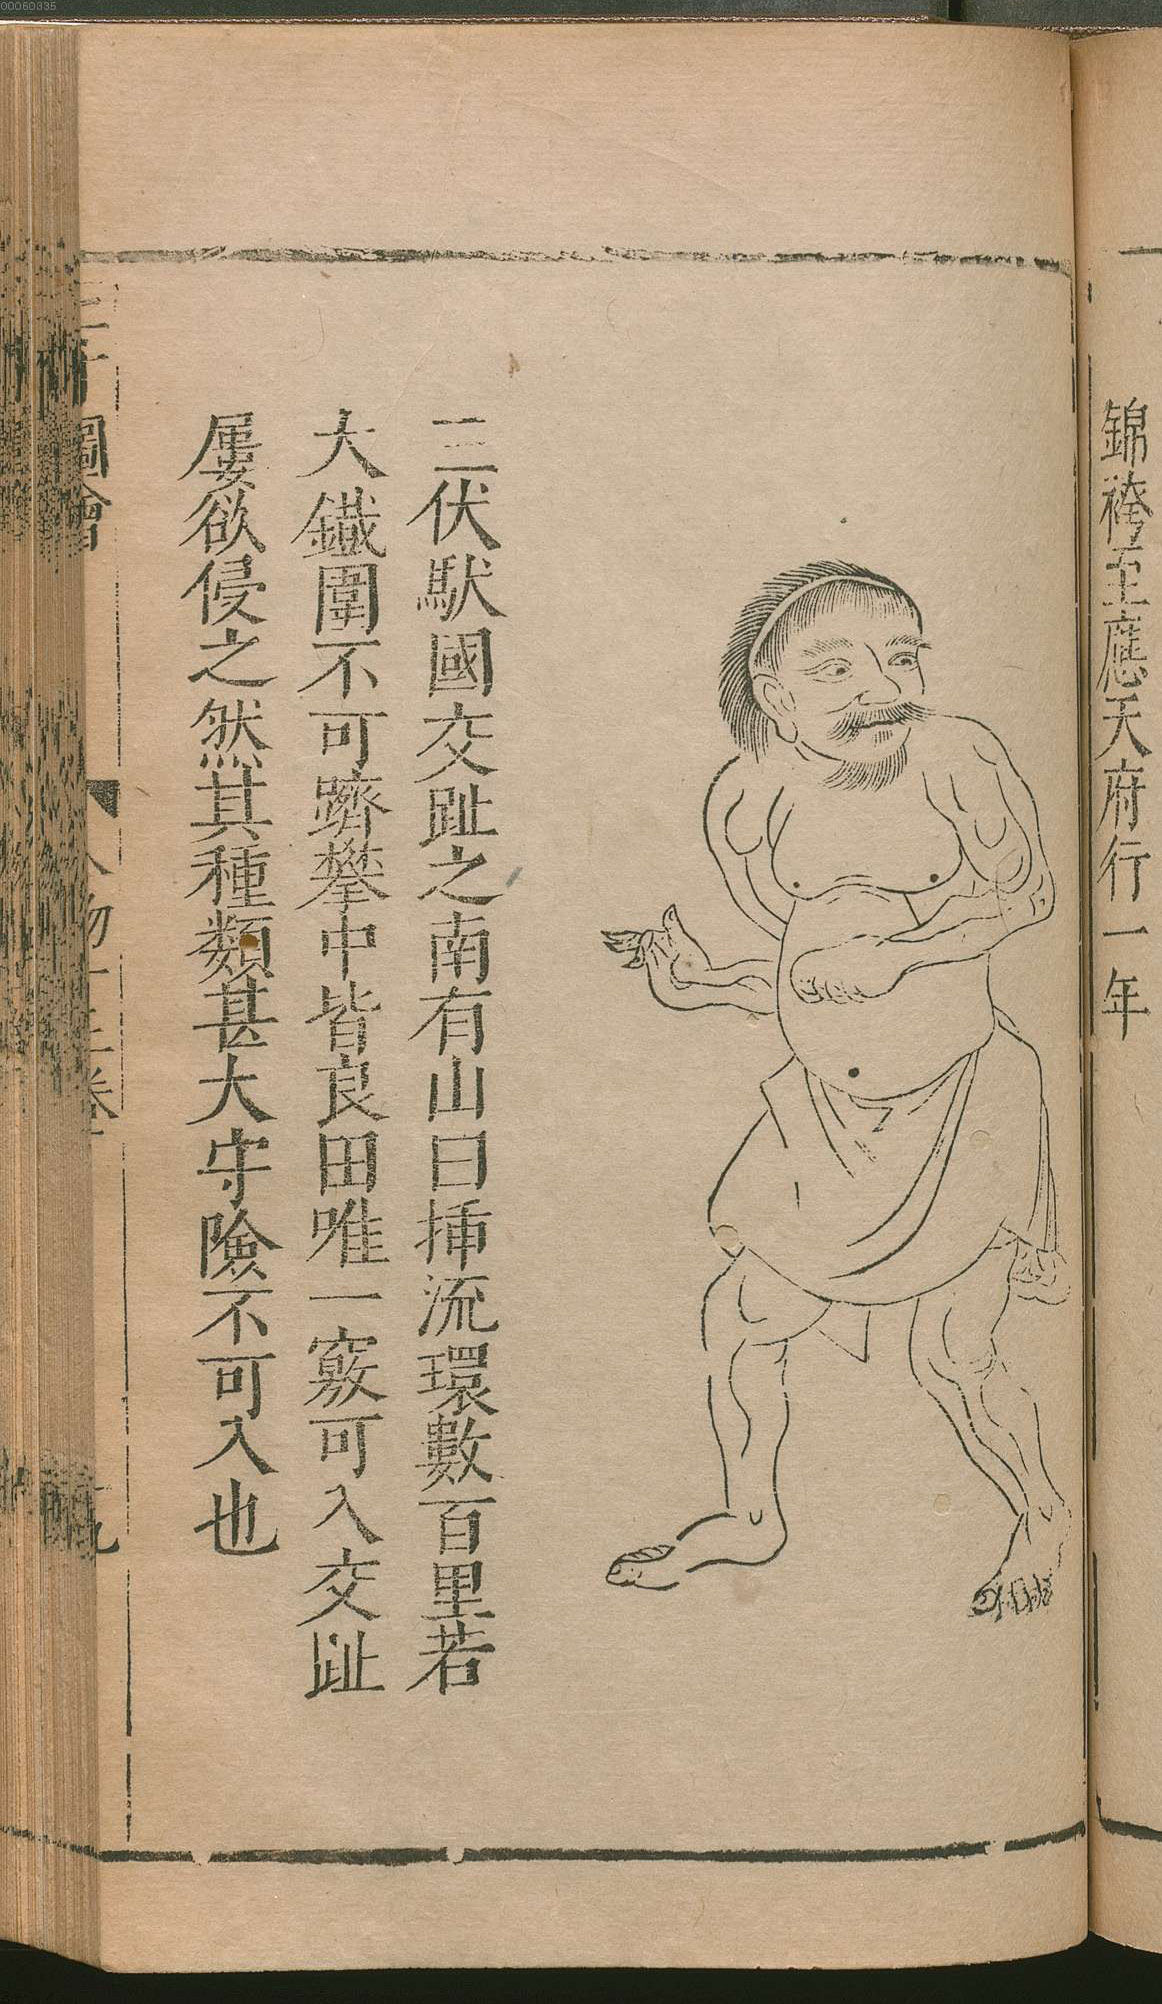 錦袴至應天府行一年
三伏馱國交趾之南有山曰揷流環數百里若
大鐵圍不可躋攀中皆良田唯一竅可入交趾
屢欲侵之然其種類甚大守險不可入也
圖會
00060335